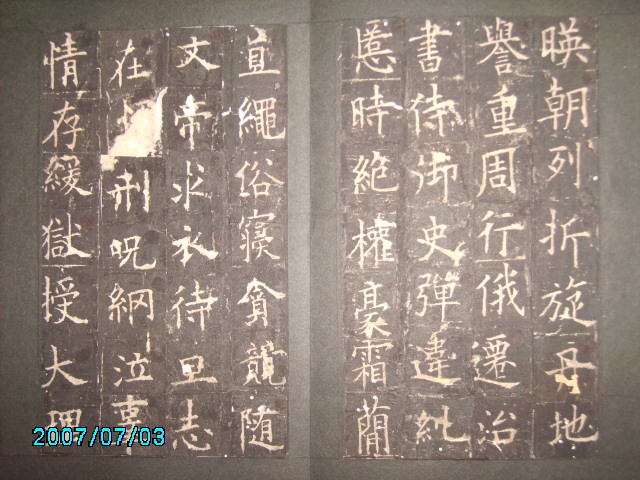 暎朝列折旋丹地
譽重周行俄遷治
書侍御史彈違糺
慝時絕權豪霜蕑
直繩俗寢貪競随
文帝求衣待旦志
在刑呪網泣辜
情存緩獄授大理
2007/07/03